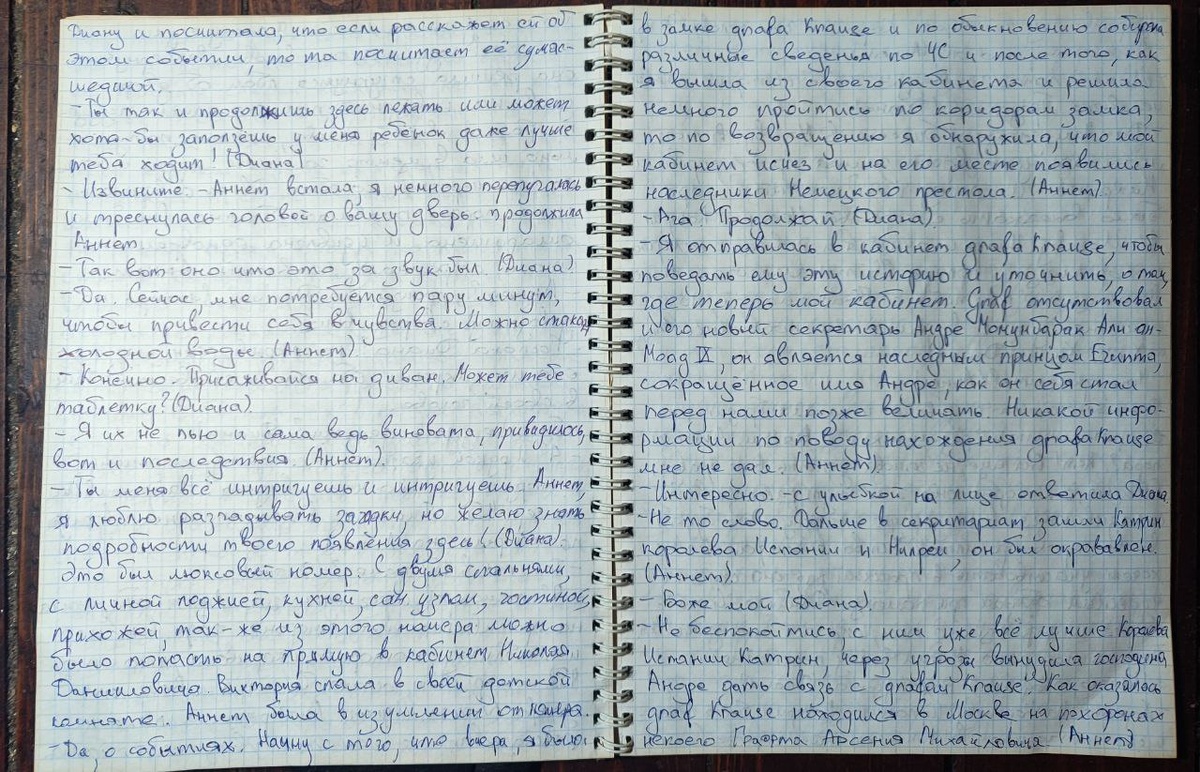 Диану и посчитала, что если расскажет ей об
этом событии, то та посчитает её сумас-
шедшой.
- Ты так и продолжишь здесь лежать или может
хотя-бы заползёшь у меня ребёнок даже лучше
тебя ходит! (Диана)
- Извините. - Аннет встала, я немного перепугалась
и треснулась головой о вашу дверь. продолжила
Аннет
- Так вот оно что это за звук был (Диана)
- Да. Сейчас, мне потребуется пару минут,
чтобы привести себя в чувства. Можно стакан
холодной воды. (Аннет)
- Конечно. Присаживайся на диван. Может тебе
таблетку? (Диана).
- Я их не пью и сама ведь виновата, привиделось,
вот и последствия. (Аннет).
- Ты меня всё интригуешь и интригуешь. Аннет,
я люблю разгадывать загадки, но желаю знать
подробности твоего появления здесь! (Диана).
Это был люксовый номер. С двумя спальнями,
с личной лоджией, кухней, сан узлом, гостиной,
прихожей, так-же из этого номера можно
было попасть на прямую в кабинет Николая
Данииловича. Виктория спала в своей детской
комнате. Аннет была в изумлении от номера.
- Да, о событиях. Начну с того, что вчера, я была
в замке графа Краузе и по обыкновению собирала
различные сведенья по ЧС и после того, как
я вышла из своего кабинета и решила
немного пройтись по коридорам замка,
то по возвращению я обнаружила, что мой
кабинет исчез и на его месте появились
наследники Немецкого престола. (Аннет).
- Ага. Продолжай. (Диана).
- Я отправилась в кабинет графа Краузе, чтобы
поведать ему эту историю и уточнить, о том,
где теперь мой кабинет. Граф отсутствовал
и его новый секретарь Андре Монунбарак Али ан-
Моад IX, он является наследным принцом Египта,
сокращённое имя Андре, как он себя стал
перед нами позже величать. Никакой инфо-
рмации по поводу нахождения графа Краузе
мне не дал. (Аннет).
- Интересно. - с улыбкой на лице ответила Диана.
- Не то слово. Дальше в секритариат зашли Катрин
королева Испании и Нилрем, он был окрававлен.
(Аннет).
- Боже мой (Диана).
- Не беспокойтись, с ним уже всё лучше. Королева
Испании Катрин, через угрозы вынудила господина
Андре дать связь с графам Краузе. Как оказалось
граф Краузе находился в Москве на похоронах
некоего Арсения Михайловича. (Аннет)